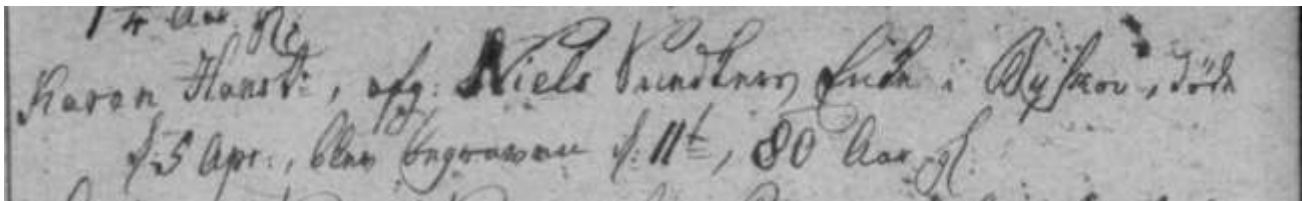 74 Aar gl.
Karen Hansd:, afg: Niels Snedkers Enke i Byskov, døde
d: 5 Apr:, blev begraven d: 11t, 80 Aar gl.